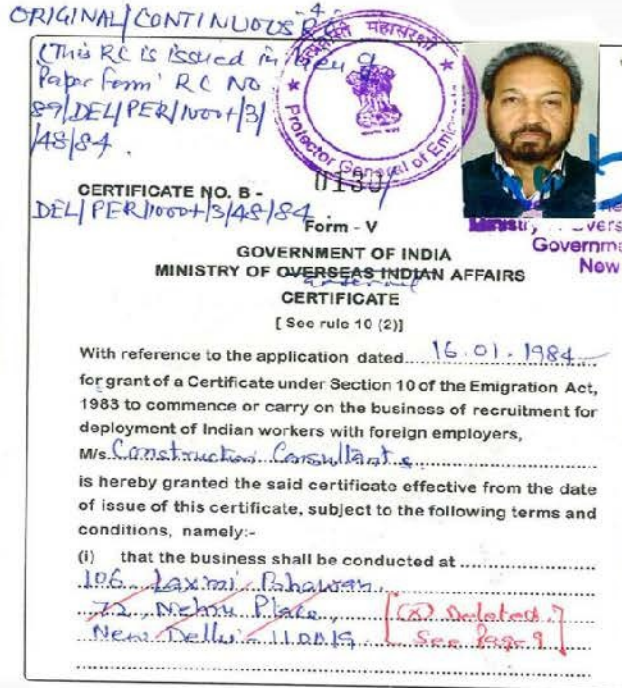 ORIGINAL/CONTINUOUS RC
(This RC is issued in lieu of
Paper form' RC NO
89/DEL/PER/1000+/3/
/48/84.
महासंरक्षी
Protector General of Emig
CERTIFICATE NO. B - 0130
DEL/PER/1000+/3/48/84.
Form - V
GOVERNMENT OF INDIA
MINISTRY OF OVERSEAS INDIAN AFFAIRS
External
CERTIFICATE
[ See rule 10 (2)]
Governme
New
With reference to the application dated 16.01.1984
for grant of a Certificate under Section 10 of the Emigration Act,
1983 to commence or carry on the business of recruitment for
deployment of Indian workers with foreign employers,
M/s. Construction Consultants
is hereby granted the said certificate effective from the date
of issue of this certificate, subject to the following terms and
conditions, namely:-
(i) that the business shall be conducted at
106, Laxmi Bhawan,
72, Nehru Place,
New Delhi - 110019.
(X) Deleted.
See Page 9